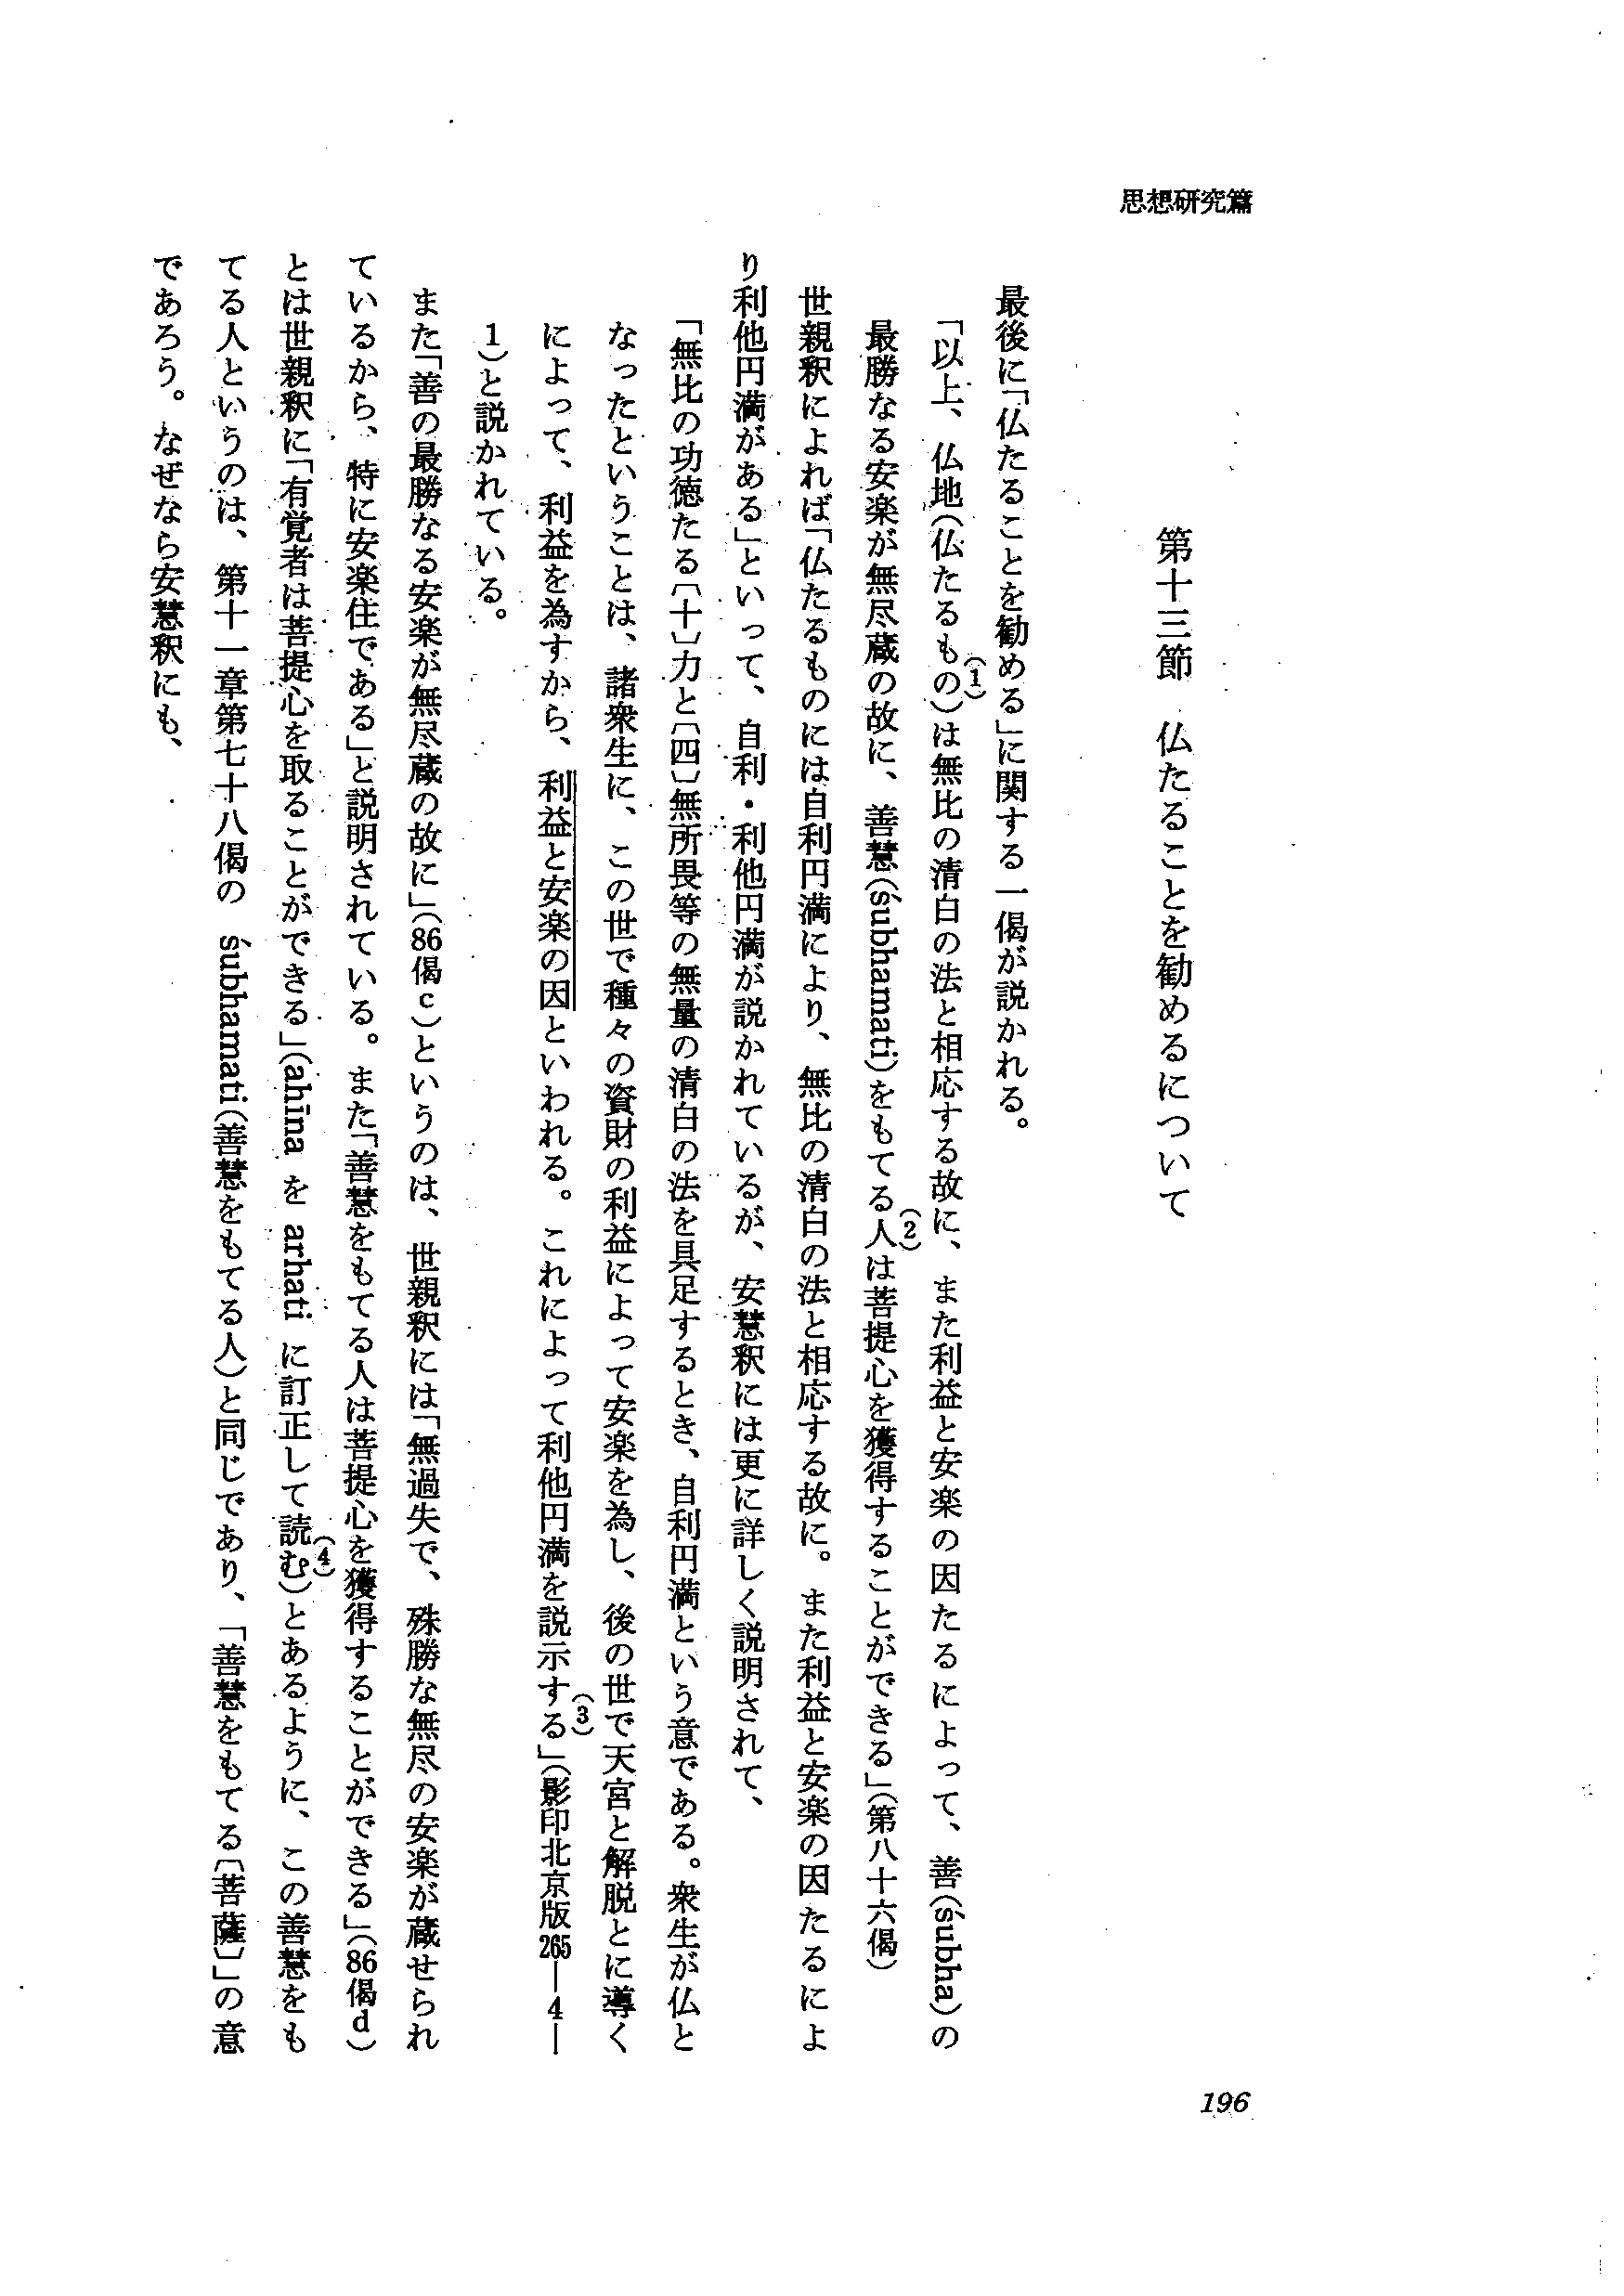 思想研究篇
第十三節　仏たることを勧めるについて
最後に「仏たることを勧める」に関する一偈が説かれる。
「以上、仏地(仏たるもの)(1)は無比の清白の法と相応する故に、また利益と安楽の因たるによって、善(śubha)の
最勝なる安楽が無尽蔵の故に、善慧(śubhamati)をもてる人(2)は菩提心を獲得することができる」(第八十六偈)
世親釈によれば「仏たるものには自利円満により、無比の清白の法と相応する故に。また利益と安楽の因たるによ
り利他円満がある」といって、自利・利他円満が説かれているが、安慧釈には更に詳しく説明されて、
「無比の功徳たる〔十〕力と〔四〕無所畏等の無量の清白の法を具足するとき、自利円満という意である。衆生が仏と
なったということは、諸衆生に、この世で種々の資財の利益によって安楽を為し、後の世で天宮と解脱とに導く
によって、利益を為すから、利益と安楽の因といわれる。これによって利他円満を説示する」(3)(影印北京版265―4―
1)と説かれている。
また「善の最勝なる安楽が無尽蔵の故に」(86偈c)というのは、世親釈には「無過失で、殊勝な無尽の安楽が蔵せられ
ているから、特に安楽住である」と説明されている。また「善慧をもてる人は菩提心を獲得することができる」(86偈d)
とは世親釈に「有覚者は菩提心を取ることができる」(ahīna を arhati に訂正して読む)(4)とあるように、この善慧をも
てる人というのは、第十一章第七十八偈の śubhamati(善慧をもてる人)と同じであり、「善慧をもてる〔菩薩〕」の意
であろう。なぜなら安慧釈にも、
196